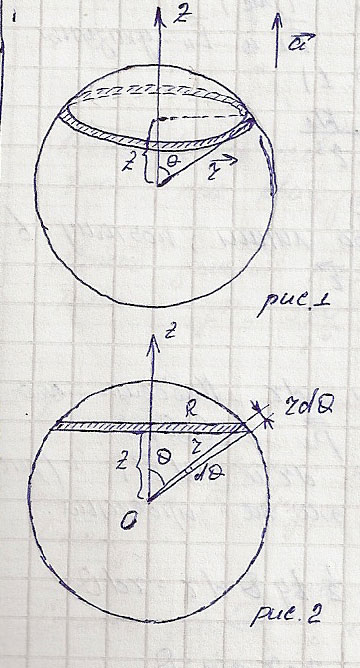 z
a
z
θ
r
рис.1
z
R
rdθ
z
θ
r
dθ
O
рис.2